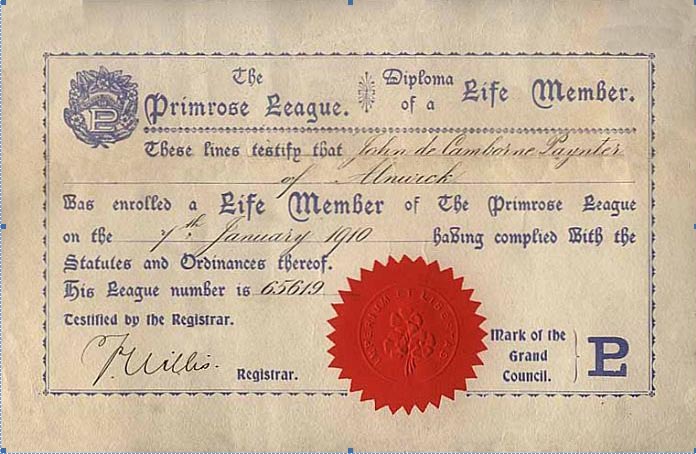 The Primrose League. Diploma of a Life Member.
These lines testify that John de Camborne Paynter
of Alnwick
Was enrolled a Life Member of The Primrose League
on the 7th January 1910 having complied With the
Statutes and Ordinances thereof.
His League number is 65619
Testified by the Registrar.
F. Willis. Registrar.
IMPERIUM ET LIBERTAS
Mark of the Grand Council. PL